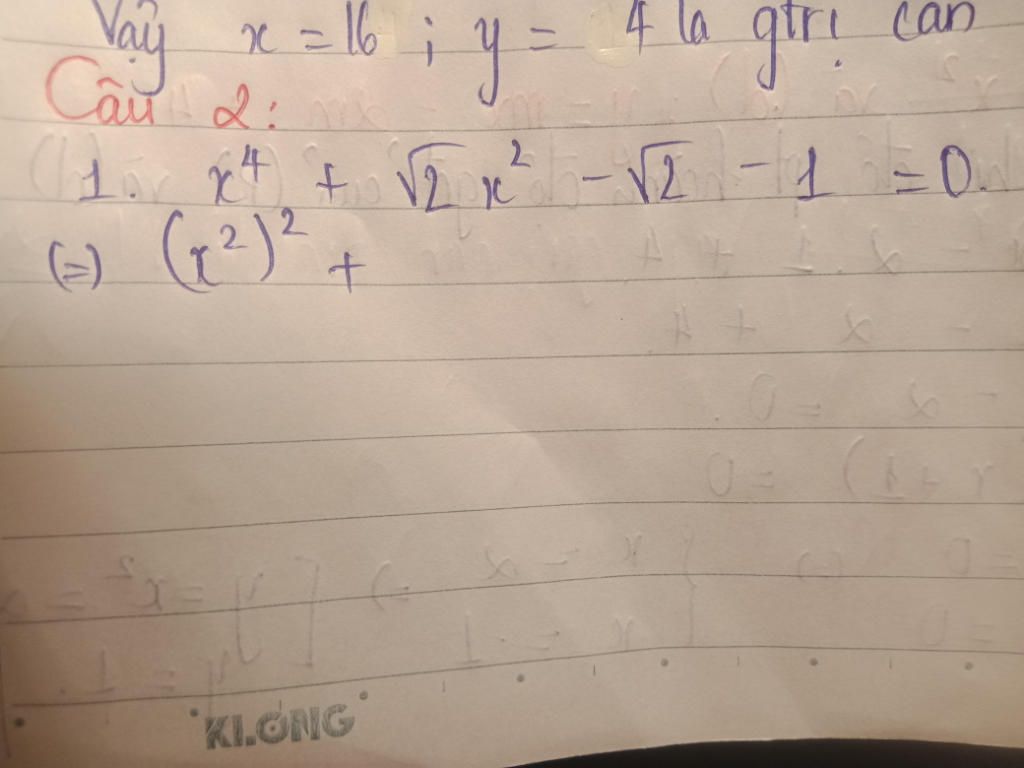 Vậy x = 16 ; y = 4 là gtrị cần
Câu 2:
1. x⁴ + √2 x² - √2 - 1 = 0.
(=) (x²)² +
KLONG